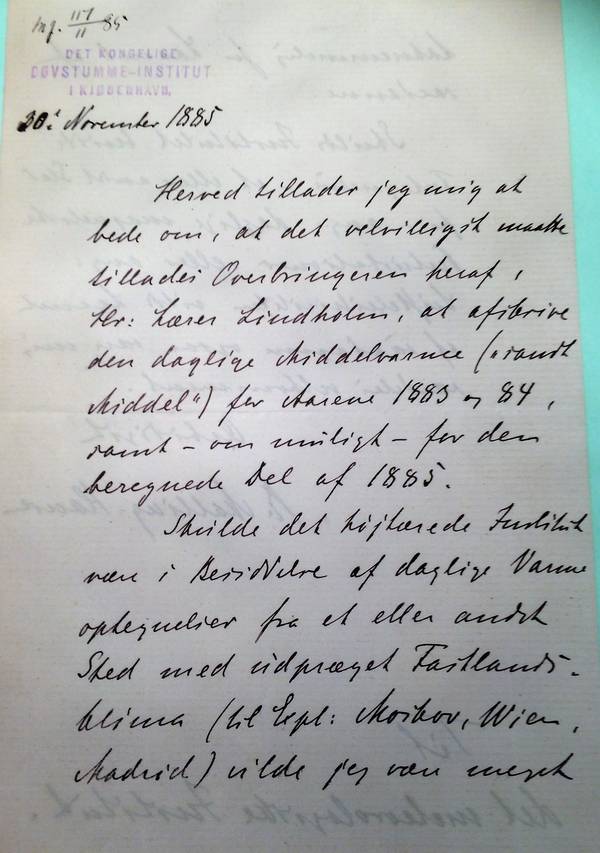 DET KONGELIGE
DØVSTUMME-INSTITUT
I KJØBENHAVN.
30: November 1885
Herved tillader jeg mig at
bede om, at det velvilligst maatte
tillades Overbringeren heraf,
Hr: Lærer Lindholm, at afskrive
den daglige Middelvarme („sandt
Middel“) for Aarene 1883 og 84,
samt – om muligt – for den
beregnede Del af 1885.
Skulde det højtærede Institut
være i Besiddelse af daglige Varme
optegnelser fra et eller andet
Sted med udpræget Fastlands-
klima (til Expl: Moskov, Wien,
Madrid) vilde jeg være meget